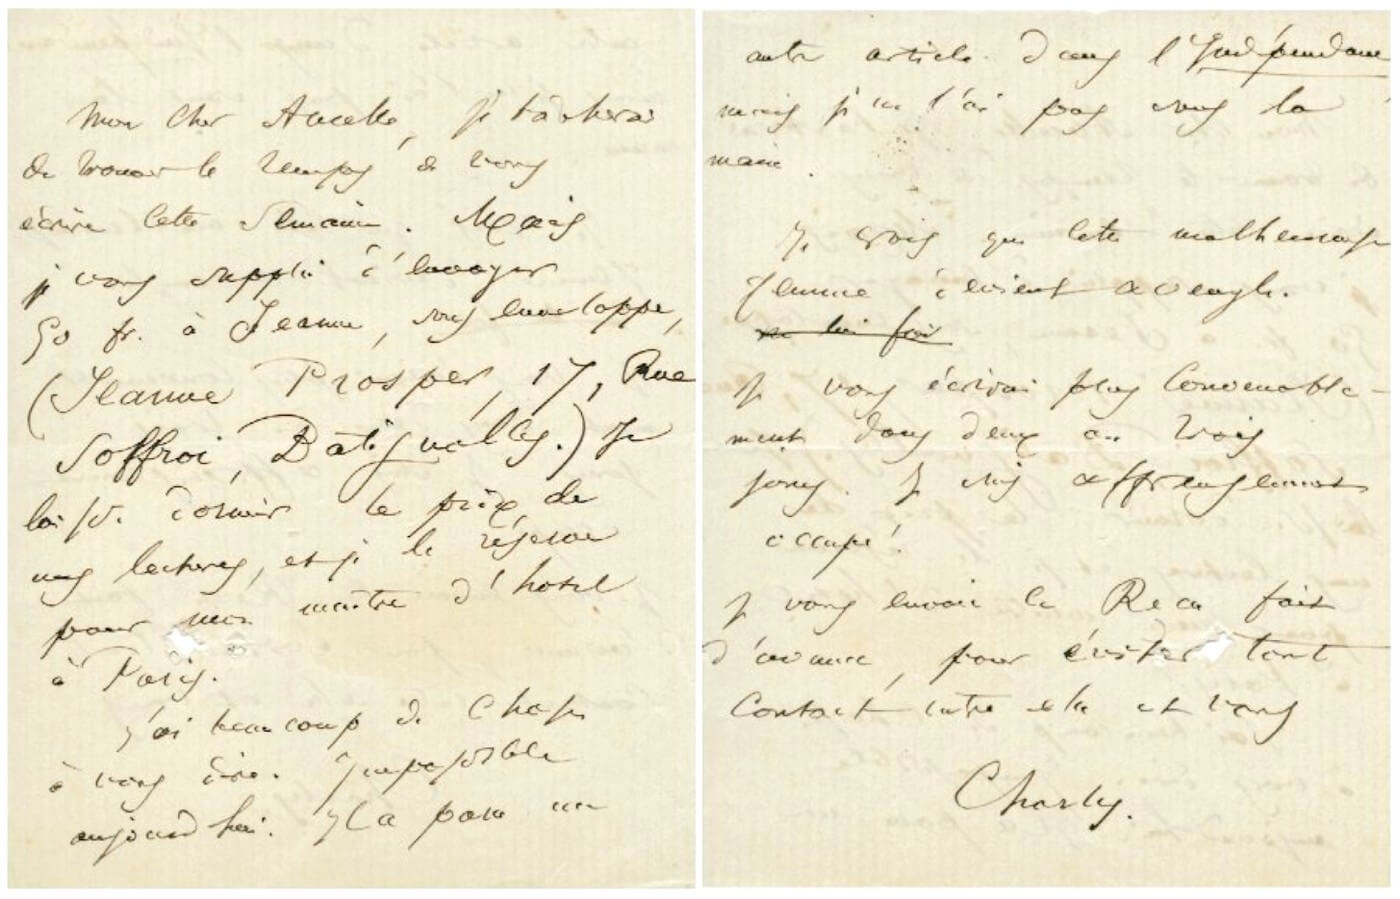 Mon cher Ancelle, je tâcherai
de trouver le temps de vous
écrire cette semaine. Mais
je vous supplie d'envoyer
50 fr. à Jeanne, sous enveloppe,
(Jeanne Prosper, 17, Rue
Soffroi, Batignolles.) Je
laisse dormir le prix de
mes lectures, et je le réserve
pour mon maître d'hotel
à Paris.
J'ai beaucoup de choses
à vous dire. Impossible
aujourd'hui. Il a paru un
autre article dans l'Indépendance
mais je ne l'ai pas sous la
main.
Je crois que cette malheureuse
Jeanne devient aveugle.
Je vous écrirai plus convenable-
ment dans deux ou trois
jours. Je suis affreusement
occupé.
Je vous envoie le Reçu fait
d'avance, pour éviter tout
contact entre elle et vous
Charles.